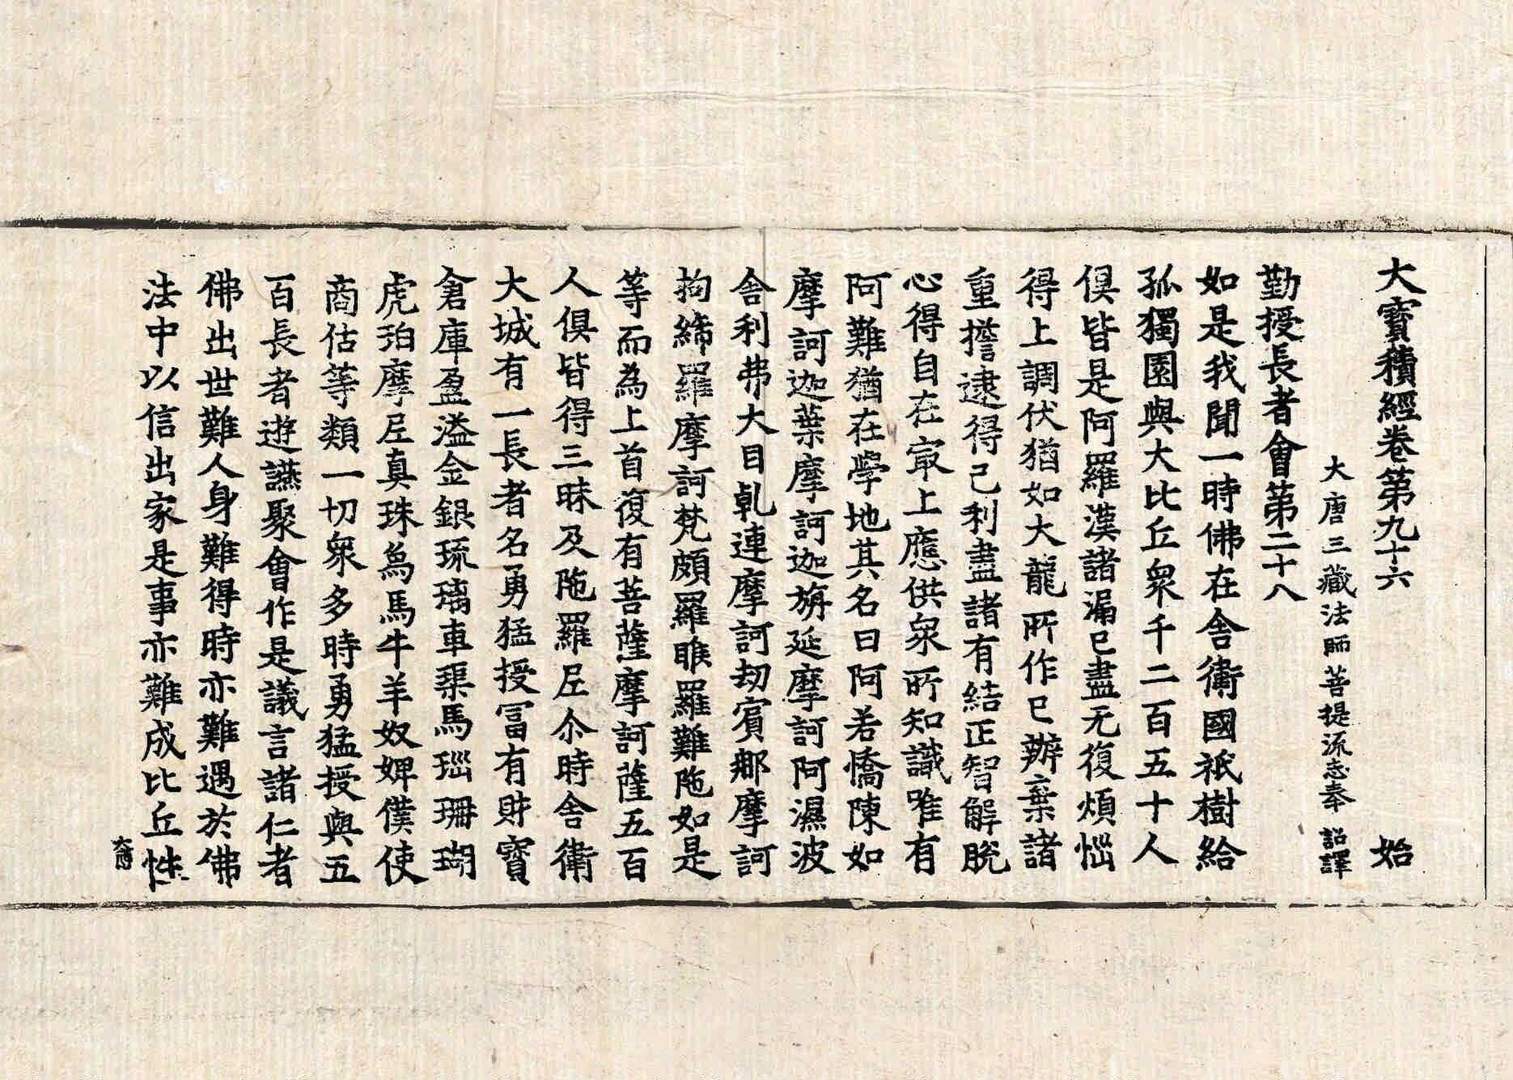 大寶積經卷第九十六　始
大唐三藏法師菩提流志奉　詔譯
勤授長者會第二十八
如是我聞一時佛在舍衛國祇樹給
孤獨園與大比丘衆千二百五十人
俱皆是阿羅漢諸漏已盡无復煩惱
得上調伏猶如大龍所作已辦棄諸
重擔逮得己利盡諸有結正智解脫
心得自在寂上應供衆所知識唯有
阿難猶在學地其名曰阿若憍陳如
摩訶迦葉摩訶迦旃延摩訶阿濕波
舍利弗大目乹連摩訶劫賓那摩訶
拘絺羅摩訶梵頗羅睺羅難陁如是
等而為上首復有菩薩摩訶薩五百
人俱皆得三昧及陁羅尼尒時舍衛
大城有一長者名勇猛授冨有財寶
倉庫盈溢金銀琉璃車𤦲馬瑙珊瑚
虎珀摩尼真珠為馬牛羊奴婢僕使
商估等類一切衆多時勇猛授與五
百長者遊讌聚會作是議言諸仁者
佛出世難人身難得時亦難遇於佛
法中以信出家是事亦難成比丘性